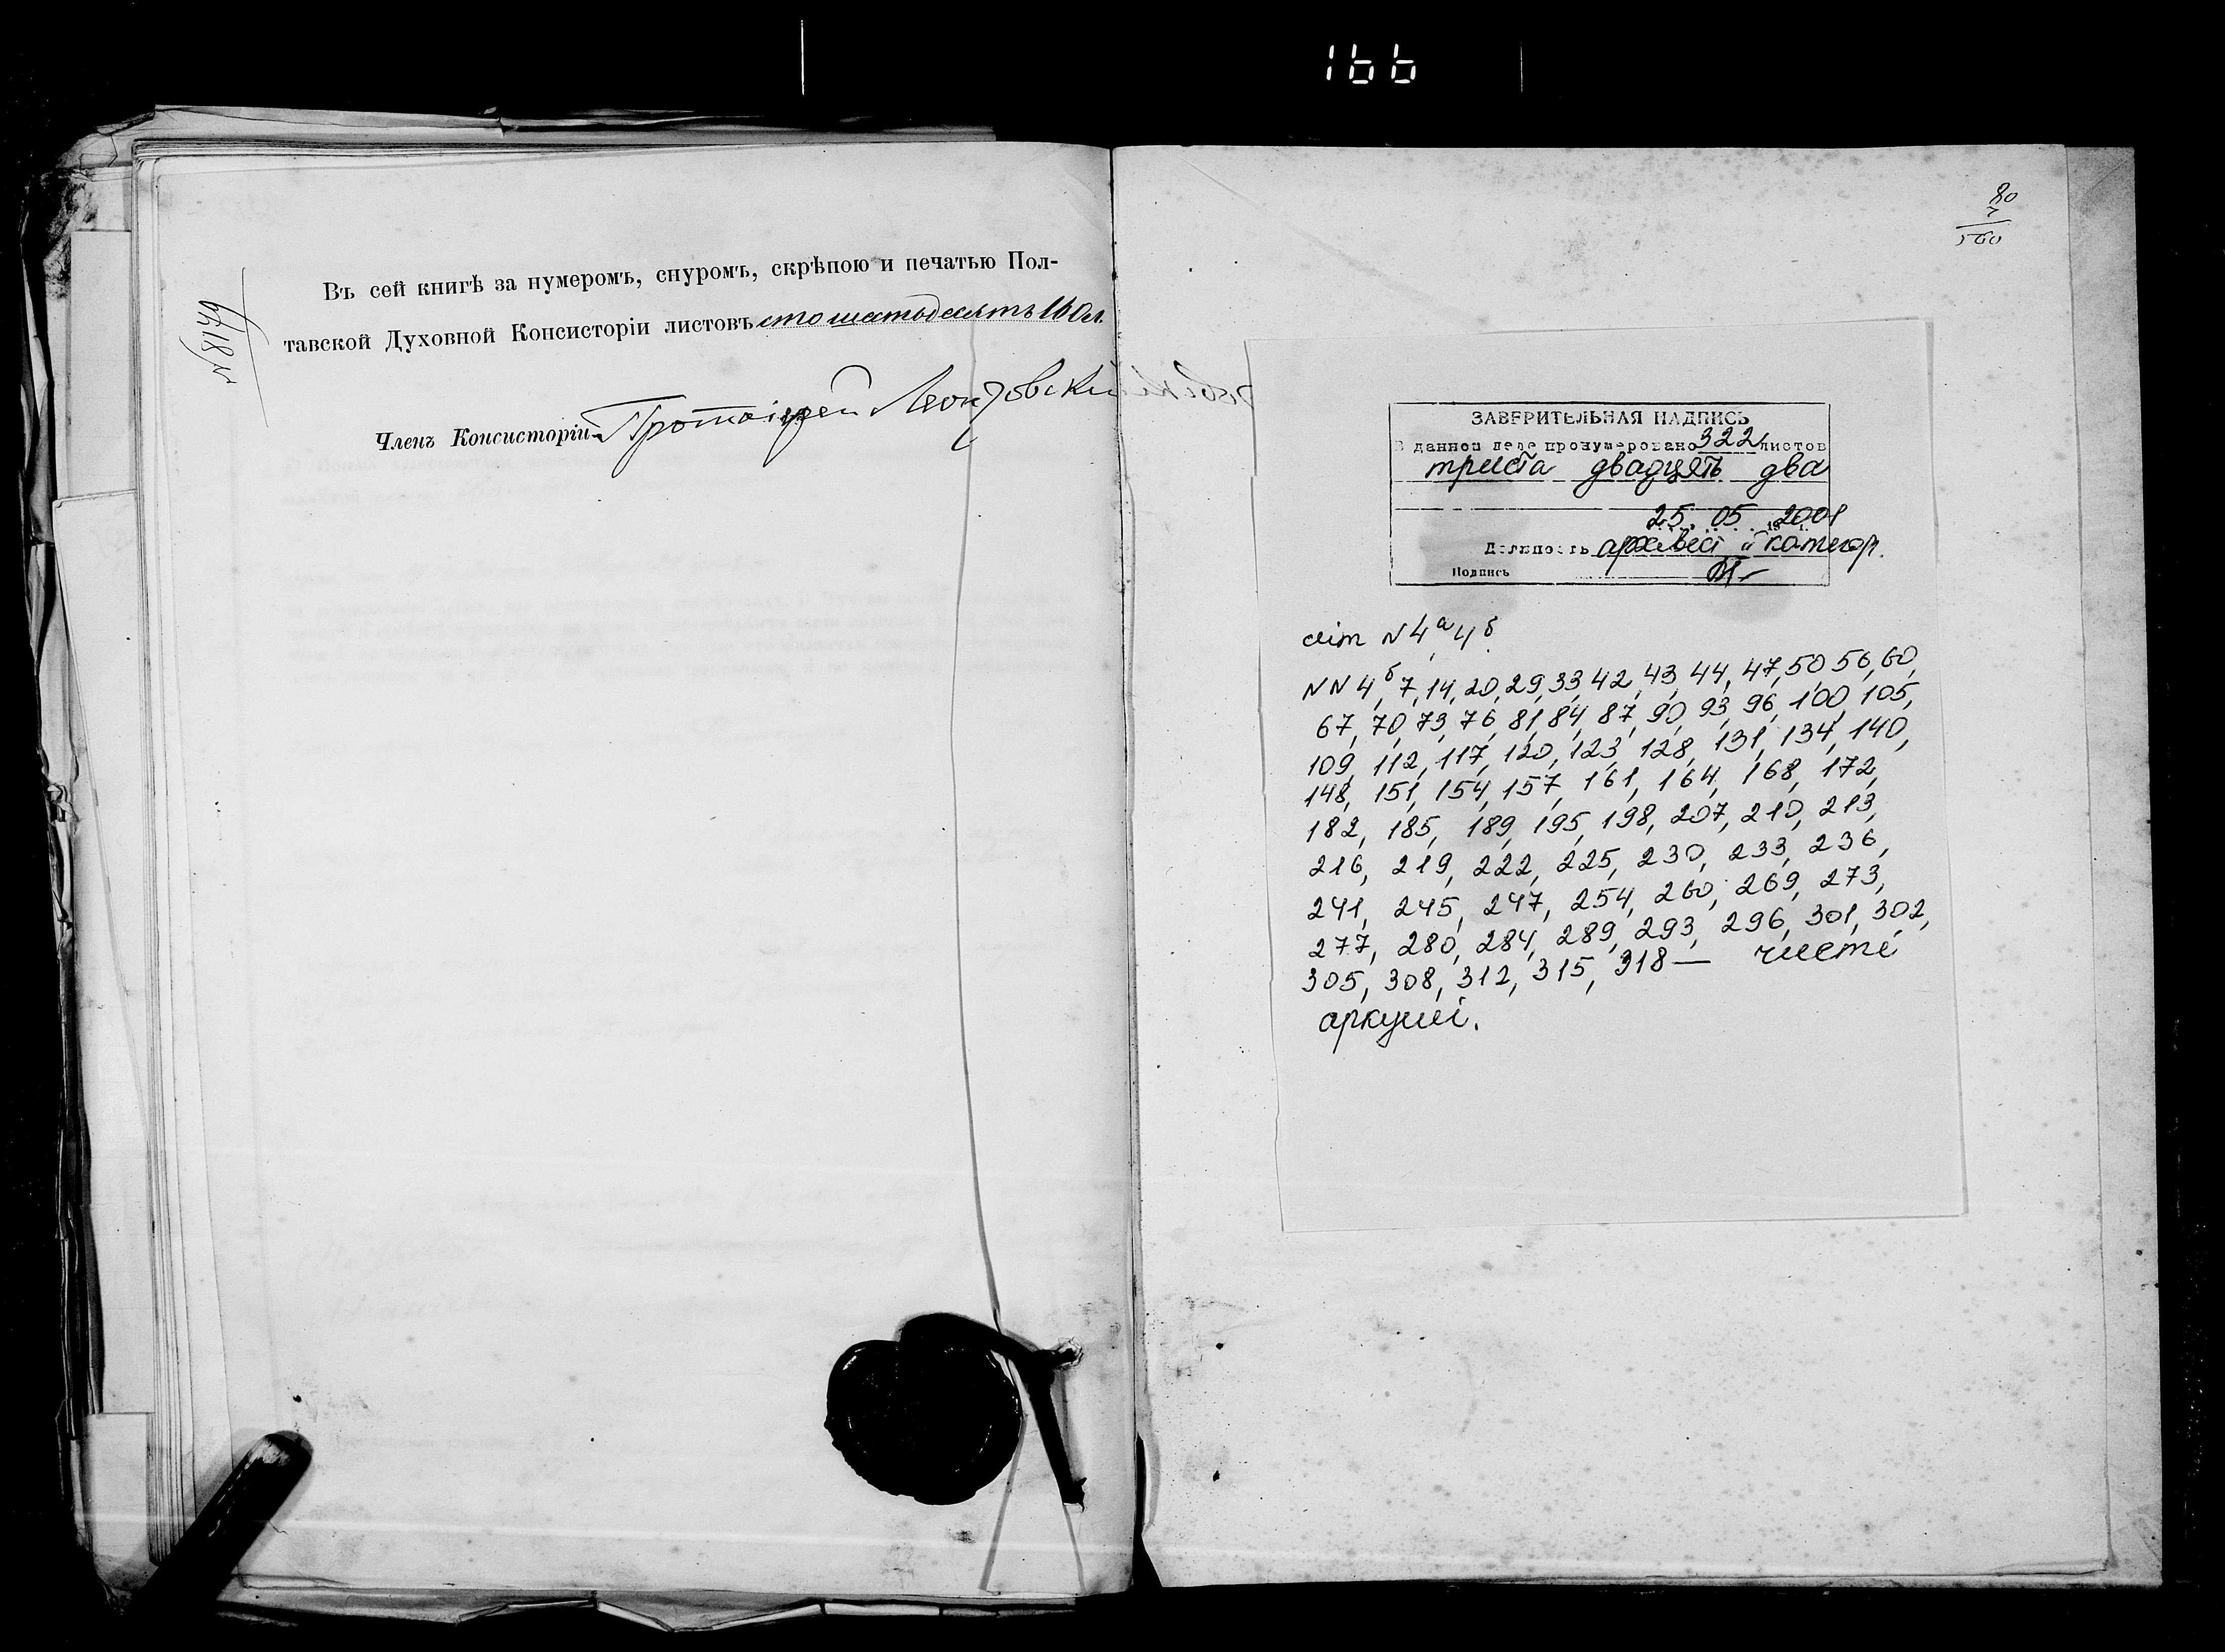 166
Въ сей книгѣ за нумеромъ, снуромъ, скрѣпою и печатью Пол-
тавской Духовной Консисторіи листовъ сто шестьдесятъ 160 л.
Членъ Консисторіи Протоіерей
80
7
560
ЗАВЕРИТЕЛЬНАЯ НАДПИСЬ
В данном деле пронумеровано 322 листов
триста двадцять два
25. 05. 19 2001
Должность архівіст II категор.
Подпись
літ N 4а, 4б.
NN 4б, 7, 14, 20, 29, 33, 42, 43, 44, 47, 50, 56, 60,
67, 70, 73, 76, 81, 84, 87, 90, 93, 96, 100, 105,
109, 112, 117, 120, 123, 128, 131, 134, 140,
148, 151, 154, 157, 161, 164, 168, 172,
182, 185, 189, 195, 198, 207, 210, 213,
216, 219, 222, 225, 230, 233, 236,
241, 245, 247, 254, 260, 269, 273,
277, 280, 284, 289, 293, 296, 301, 302,
305, 308, 312, 315, 318 — чисті
аркуші.